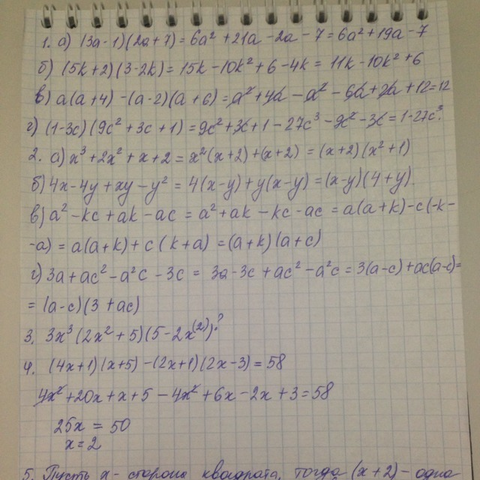 1. а) (3a-1)(2a+7) = 6a² + 21a - 2a - 7 = 6a² + 19a - 7
б) (5k+2)(3-2k) = 15k - 10k² + 6 - 4k = 11k - 10k² + 6
в) a(a+4) - (a-2)(a+6) = a² + 4a - a² - 6a + 2a + 12 = 12
г) (1-3c)(9c² + 3c + 1) = 9c² + 3c + 1 - 27c³ - 9c² - 3c = 1 - 27c³
2. а) x³ + 2x² + x + 2 = x²(x+2) + (x+2) = (x+2)(x²+1)
б) 4x - 4y + xy - y² = 4(x-y) + y(x-y) = (x-y)(4+y).
в) a² - kc + ak - ac = a² + ak - kc - ac = a(a+k) - c(-k-
-a) = a(a+k) + c(k+a) = (a+k)(a+c)
г) 3a + ac² - a²c - 3c = 3a - 3c + ac² - a²c = 3(a-c) + ac(a-c) =
= (a-c)(3+ac)
3. 3x³(2x²+5)(5-2x(2))?
4. (4x+1)(x+5) - (2x+1)(2x-3) = 58
4x² + 20x + x + 5 - 4x² + 6x - 2x + 3 = 58
25x = 50
x = 2
5. Пусть x - сторона квадрата, тогда (x+2) - одна